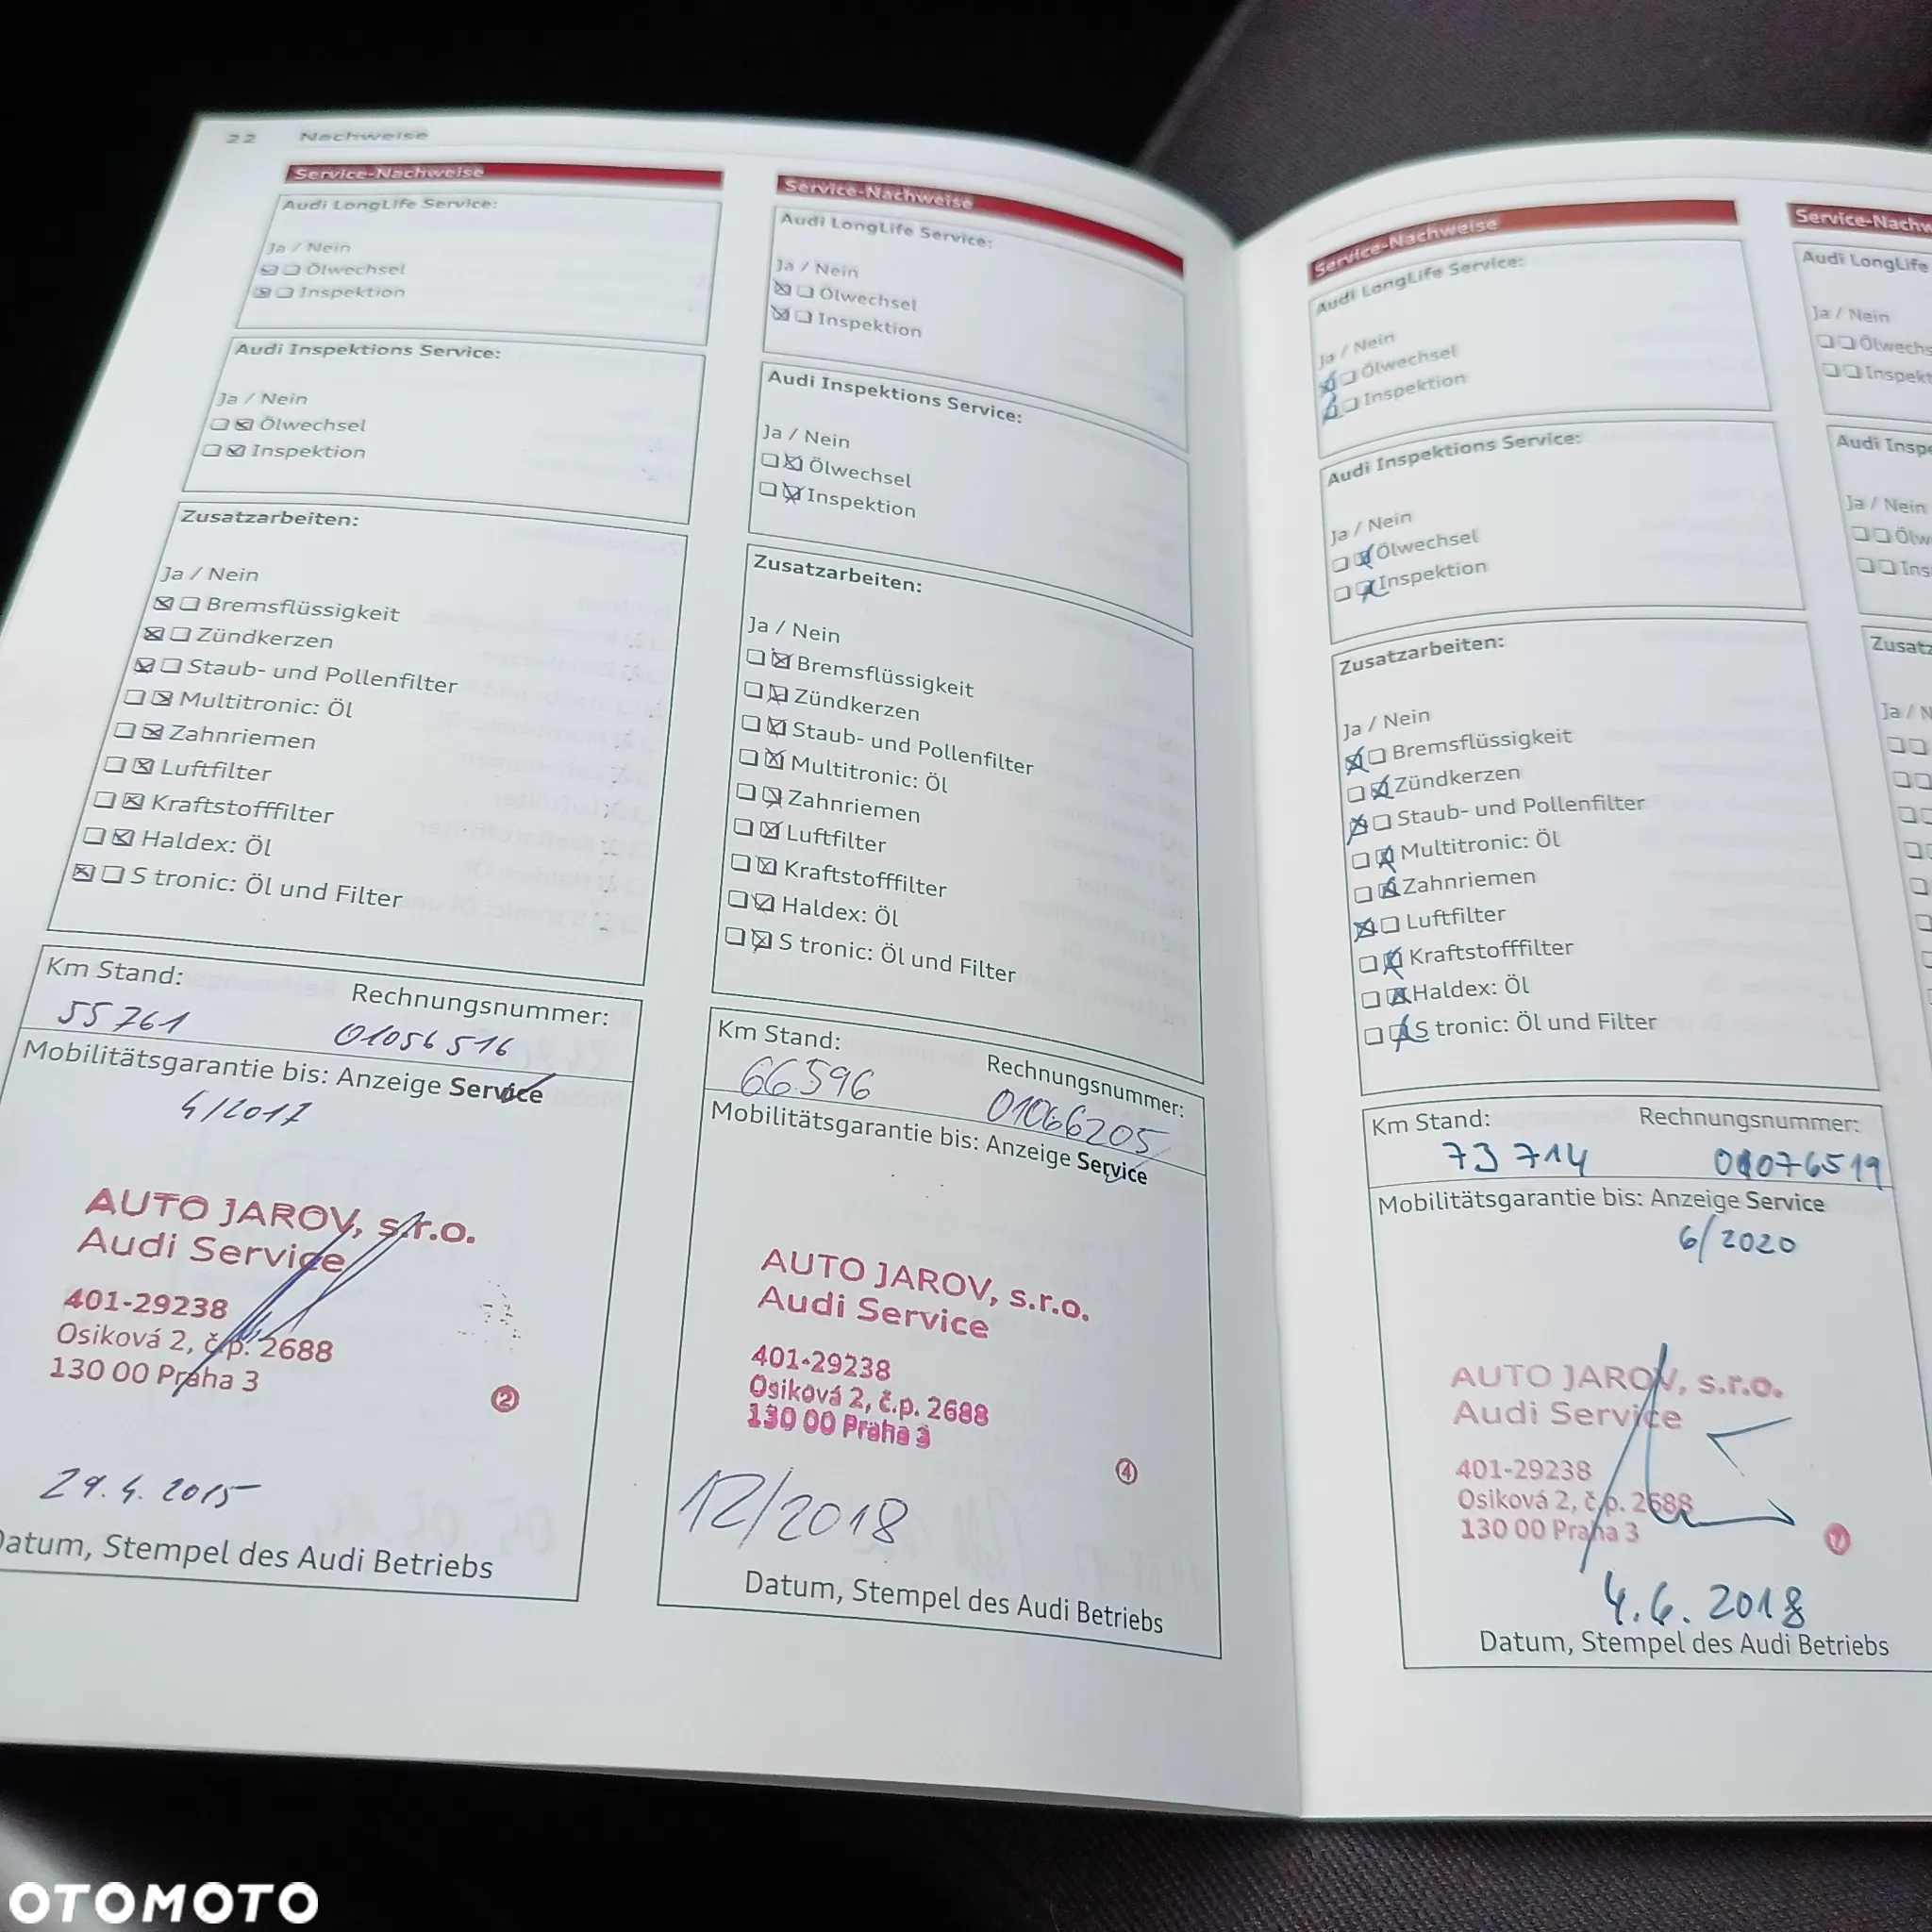 22 Nachweise
Service-Nachweise
Audi LongLife Service:
Ja / Nein
Ölwechsel
Inspektion
Audi Inspektions Service:
Ja / Nein
Ölwechsel
Inspektion
Zusatzarbeiten:
Ja / Nein
Bremsflüssigkeit
Zündkerzen
Staub- und Pollenfilter
Multitronic: Öl
Zahnriemen
Luftfilter
Kraftstofffilter
Haldex: Öl
S tronic: Öl und Filter
Km Stand: Rechnungsnummer:
55761 01056516
Mobilitätsgarantie bis: Anzeige Service
4/2017
AUTO JAROV, s.r.o.
Audi Service
401-29238
Osiková 2, č.p. 2688
130 00 Praha 3
2
29.4. 2015
Datum, Stempel des Audi Betriebs
Service-Nachweise
Audi LongLife Service:
Ja / Nein
Ölwechsel
Inspektion
Audi Inspektions Service:
Ja / Nein
Ölwechsel
Inspektion
Zusatzarbeiten:
Ja / Nein
Bremsflüssigkeit
Zündkerzen
Staub- und Pollenfilter
Multitronic: Öl
Zahnriemen
Luftfilter
Kraftstofffilter
Haldex: Öl
S tronic: Öl und Filter
Km Stand: Rechnungsnummer:
66596 01066205
Mobilitätsgarantie bis: Anzeige Service
AUTO JAROV, s.r.o.
Audi Service
401-29238
Osiková 2, č.p. 2688
130 00 Praha 3
4
12/2018
Datum, Stempel des Audi Betriebs
Service-Nachweise
Audi LongLife Service:
Ja / Nein
Ölwechsel
Inspektion
Audi Inspektions Service:
Ja / Nein
Ölwechsel
Inspektion
Zusatzarbeiten:
Ja / Nein
Bremsflüssigkeit
Zündkerzen
Staub- und Pollenfilter
Multitronic: Öl
Zahnriemen
Luftfilter
Kraftstofffilter
Haldex: Öl
S tronic: Öl und Filter
Km Stand: Rechnungsnummer:
73 714 01076519
Mobilitätsgarantie bis: Anzeige Service
6/2020
AUTO JAROV, s.r.o.
Audi Service
401-29238
Osiková 2, č.p. 2688
130 00 Praha 3
4.6. 2018
Datum, Stempel des Audi Betriebs
Service-Nachw
Audi LongLife
Ja / Nein
Ölwechs
Inspekt
Audi Inspe
Ja / Nein
Ölw
Ins
Zusatz
Ja / N
OTOMOTO